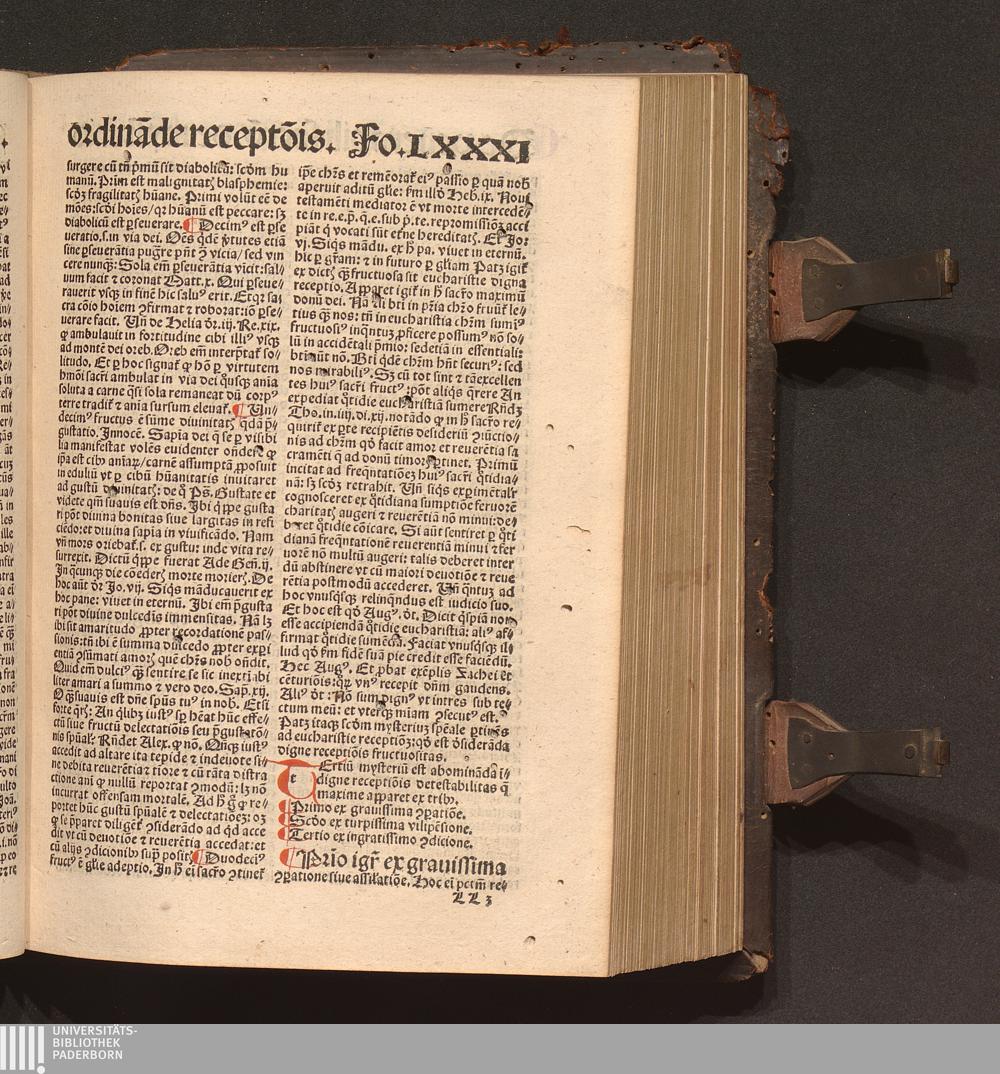 ordinãde receptõis. Fo.LXXXI
surgere cũ tñ pꝛmũ sit diabolicũ: scðm hu
manũ. Prim est malignitatꝫ blasphemie:
scðꝫ fragilitatꝫ hũane. Primi volũt eẽ de
mões: scði hoies/qꝛ hũanũ est peccare: sꝫ
diabolicũ est ꝑseuerare. Decimꝰ est ꝑse
ueratio.s.in via dei. Oẽs qͥdẽ ꝟtutes etiã
sine ꝑseuerãtia pugꝛe pñt ⁊ vicia/sed vin
cere nunqͣꝫ: Sola em̃ ꝑseuerãtia vicit: sal
uum facit ⁊ coronat Matt.x. Qui ꝑseue
rauerit vsqꝫ in finẽ hic saluꝰ erit. Etqꝛ sa
cra cõio hoiem ꝯfirmat ⁊ roborat: iõ ꝑse
uerare facit. Vñ de Helia dꝛ.iij. Re.xix.
ꝙ ambulauit in fortitudine cibi illiꝰ vsqꝫ
ad montẽ dei oreb. Oreb em̃ interptat̃ so
litudo. Et ꝑ hoc signat̃ ꝙ hõ ꝑ virtutem
hmõi sacri ambulat in via dei qͦusqꝫ aĩa
soluta a carne qͣsi sola remaneat dũ corpꝰ
terre tradit̃ ⁊ aĩa sursum eleuat̃. Vn
decimꝰ fructus ẽ sũme diuinitatꝫ qͥdã p̃
gustatio. Innocẽ. Sapia dei q̃ se ꝑ visibi
lia manifestat volẽs euidenter oñdere ꝙ
ip̃a est cibꝰ aĩarꝫ/carnẽ assumptã ꝓposuit
in eduliũ vt ꝑ cibũ hũanitatis inuitaret
ad gustũ diuinitatꝫ: de q̃ Ps. Gustate et
videte qm̃ suauis est dñs. Ibi qͥppe gusta
ri põt diuina bonitas siue largitas in refi
ciẽdo: et diuina sapia in viuificãdo. Nam
vñ mors oriebat̃.s. ex gustu: inde vita re
surrexit. Dictũ qͥppe fuerat Ade Geñ.ij.
In qͣcunqꝫ die cõederꝫ morte morierꝫ. De
hoc aũt dꝛ Jo.vij. Siqͥs mãducauerit ex
hoc pane: viuet in eternũ. Ibi em̃ p̃gusta
ri põt diuine dulcedĩs immensitas. Nã lꝫ
ibi sit amaritudo ꝓpter recordationẽ pas
sionis: tñ ibi ẽ summa dulcedo ꝓpter exꝑi
entiã ꝯsũmati amorꝫ quẽ chꝛs nob oñdit.
Quid em̃ dulciꝰ qͣꝫ sentire se sic inextrĩabi
liter amari a summo ⁊ vero deo. Sap.xij.
O qͣꝫ suauis est dñe spũs tuꝰ in nob. Etsi
forte qͥrꝫ: An qͥlibꝫ iustꝰ sꝑ hẽat hũc effe
ctũ siue fructũ delectationis seu p̃gustatõ
nis spũalꝫ. Rñdet Alex. ꝙ nõ. Qñqꝫ iustꝰ
accedit ad altare ita tepide ⁊ indeuote si
ne debita reuerẽtia ⁊ tiore ⁊ cũ tãta distra
ctione aĩi ꝙ nullũ reportat ꝯmodũ: lꝫ nõ
incurrat offensam mortalẽ. Ad hꝫ g̃ ꝙ re
portet hũc gustũ spũalẽ ⁊ delectatioẽꝫ: oꝫ
ꝙ se p̃paret diligẽt̃ ꝯsiderãdo ad qͥd acce
dit vt cũ deuotiõe ⁊ reuerẽtia accedat: et
cũ alijs ꝯdicionibꝰ supͣ positꝫ Duodeciꝰ
fructꝰ ẽ gl̃ie adeptio. In hꝫ ei sacro ꝯtinet̃
ip̃e chꝛs et remẽorat̃ eiꝰ passio ꝑ quã nob
aperuit aditũ gl̃ie: ẜm illð Heb.ix. Noui
testamẽti mediator ẽ vt morte intercedẽ
te in re.e.p̃.q̃.e.sub p̃.te.repꝛomissionẽꝫ acci
piãt q̃ vocati sũt etne hereditatꝫ. Et Jo:
vj. Siqͥs mãdu. ex hꝫ pa. viuet in eternũ.
hic ꝑ gr̃am: ⁊ in futuro ꝑ gl̃iam Patꝫ igit̃
ex dictꝫ qͣꝫ fructuosa sit eucharistie digna
receptio. Apparet igit̃ in hꝫ sacro maximũ
donũ dei. Nã lꝫ bti in pr̃ia chꝛo fruũt̃ le
tius qͣꝫ nos: tñ in eucharistia chꝛm sumimꝰ
fructuosiꝰ inqͣntuꝫ ꝓficere possumꝰ nõ so
lũ in accidẽtali p̃mio: sed etiã in essentiali:
bti aũt nõ. Bti qͥdẽ chꝛm hñt securiꝰ: sed
nos mirabiliꝰ. Sꝫ cũ tot sint ⁊ tã excellen
tes huiꝰ sacri fructꝰ: põt aliqͥs q̃rere An
expediat qͦtidie eucharistiã sumere Rñdꝫ
Tho.in.iiij.di.xij.notãdo ꝙ in hꝫ sacro re
quirit̃ ex ꝑte recipiẽtis desideriũ ꝯiũctio
nis ad chꝛm qð facit amor et reuerẽtia sa
cramẽti q̃ ad donũ timorꝫ ꝑtinet. Primũ
incitat ad freqͣntatiõeꝫ huiꝰ sacri qͦtidia
nã: sꝫ scðꝫ retrahit. Vñ siqͥs exꝑimẽtalr̃
cognosceret ex qͦtidiana sumptiõe feruorẽ
charitatꝫ augeri ⁊ reuerẽtiã nõ minui: de
beret qͦtidie cõicare. Si aũt sentiret ꝑ qͦti
dianã freqͣntationẽ reuerentiã minui ⁊ fer
uorẽ nõ multũ augeri: talis deberet inter
dũ abstinere vt cũ maiori deuotiõe ⁊ reue
rẽtia postmodũ accederet. Vñ qͣntuꝫ ad
hoc vnusqͥsqꝫ relinqͣndus est iudicio suo.
Et hoc est qð Augꝰ. dt. Dicit qͥspiã non
esse accipiendã qͦtidie eucharistiã: aliꝰ af
firmat qͦtidie sumẽdã. Faciat vnusqͥsqꝫ il
lud qð ẜm fidẽ suã pie credit esse faciẽdũ.
Hec Augꝰ. Et ꝓbat exẽplis Zachei et
cẽturiõis: qꝛ vnꝰ recepit dñm gaudens.
Aliꝰ dt: Nõ sum dignꝰ vt intres sub te
ctum meũ: et vterqꝫ miam ꝯsecutꝰ est.
Patꝫ itaqꝫ scðm mysteriuꝫ spẽale ꝑtinẽs
ad eucharistie receptiõꝫ: qð est ꝯsiderãda
digne receptiõis fructuositas.
Tertiũ mysteriũ est abominãda ĩ
digne receptiõis detestabilitas q̃
maxime apparet ex tribꝰ.
Primo ex grauissima ꝯpatiõe.
Scðo ex turpissima vilipẽsione.
Tertio ex ingratissimo ꝯdicione.
Pꝛĩo igr̃ ex grauissima
ꝯpatione siue assilatiõe. Hoc ei pctm̃ re
LL 3
UNIVERSITÄTS-
BIBLIOTHEK
PADERBORN